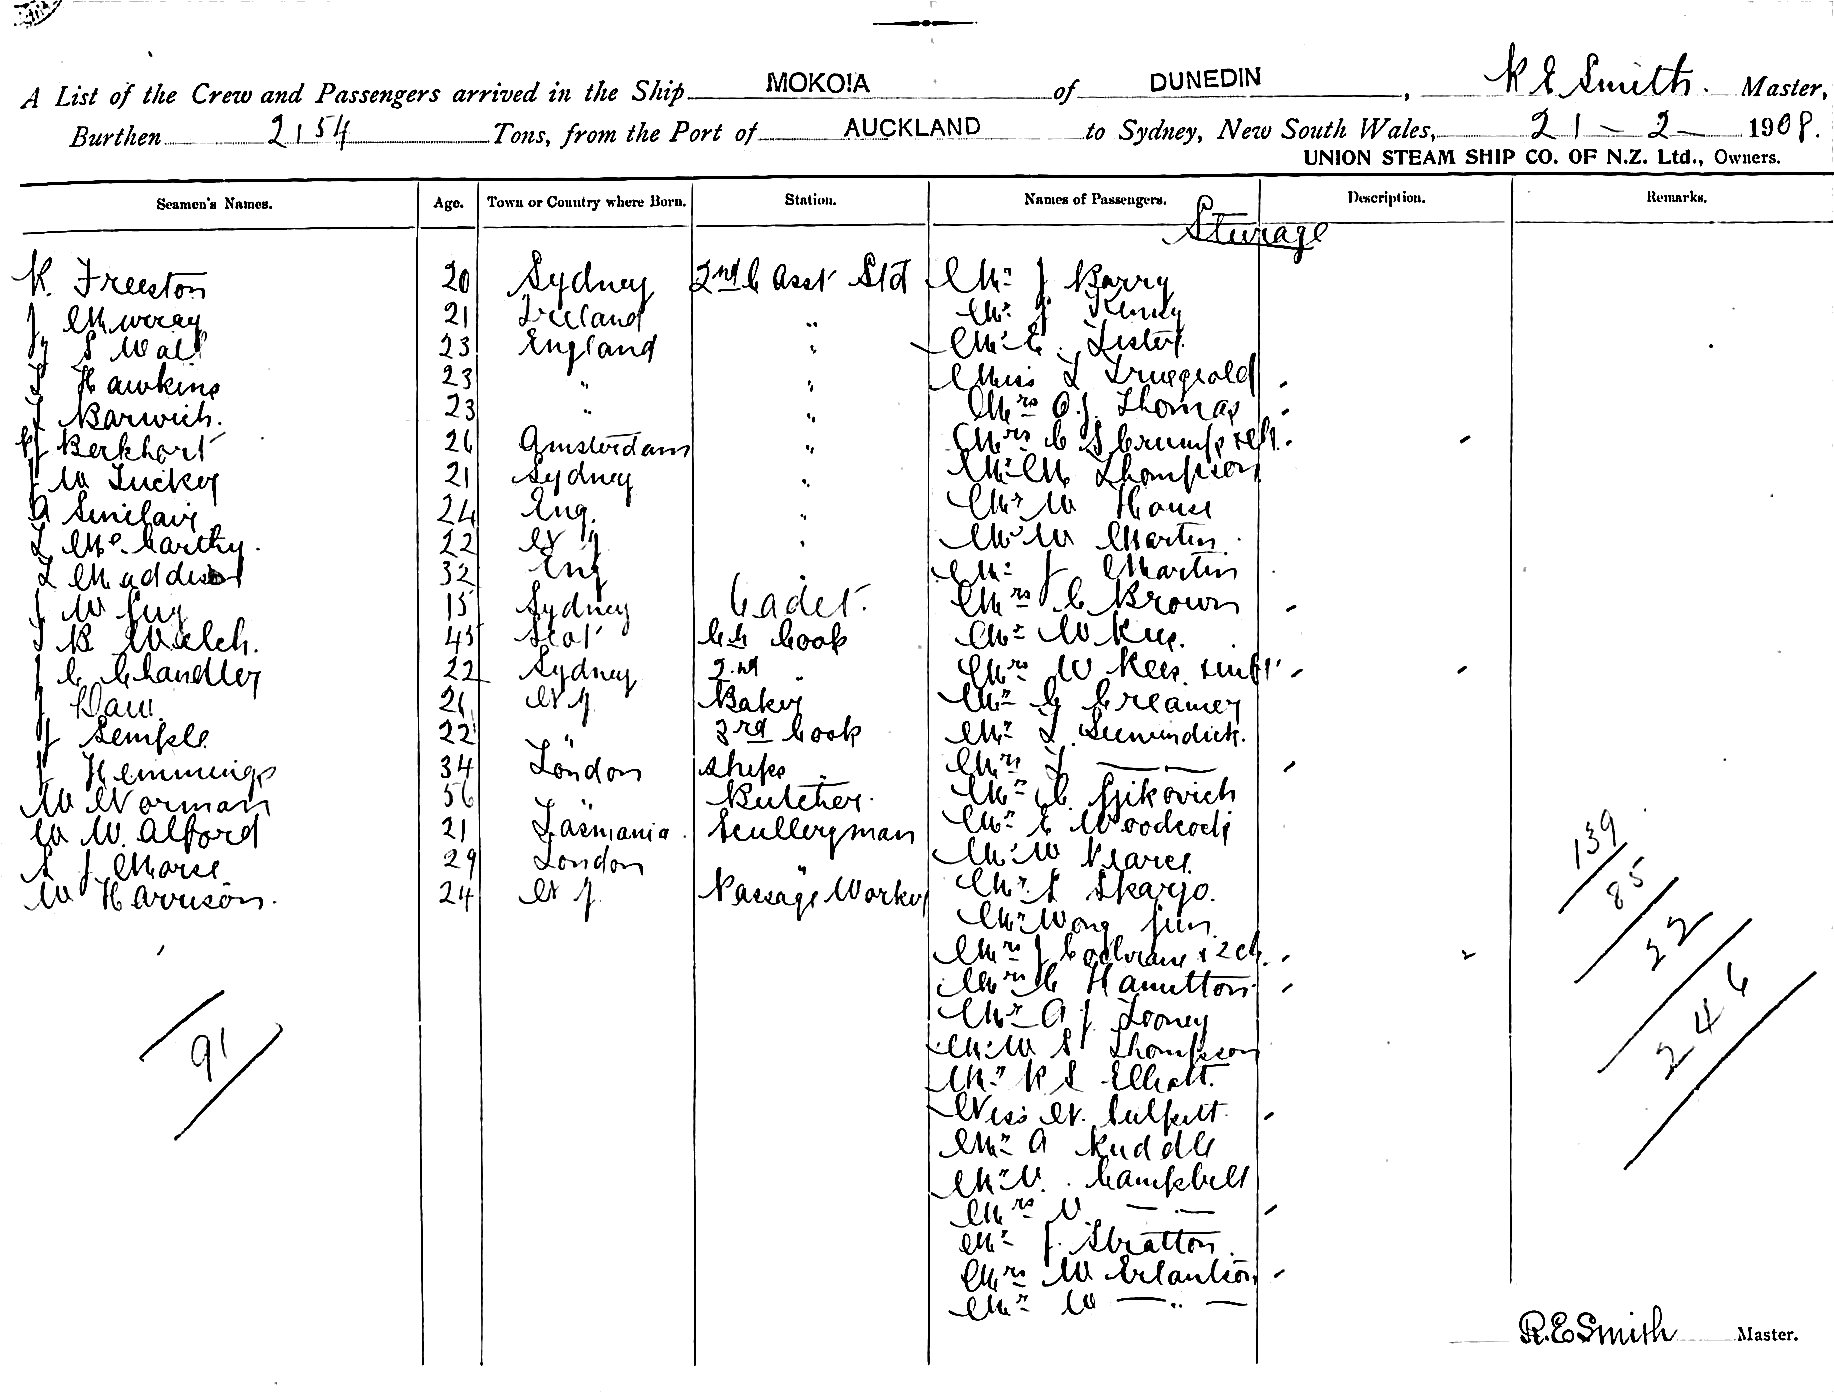 A List of the Crew and Passengers arrived in the Ship MOKOIA of DUNEDIN, R E Smith. Master,
Burthen 2154 Tons, from the Port of AUCKLAND to Sydney, New South Wales, 21 - 2 - 1908.
UNION STEAM SHIP CO. OF N.Z. Ltd., Owners.
Seamen's Names. Age. Town or Country where Born. Station. Names of Passengers. Description. Remarks.
Steerage
R. Freeston 20 Sydney 2nd C Asst Std Mr J Barry
J Murray 21 Ireland " Mr J Kenny
S Wall 23 England " Mr E. Lister
Hawkins 23 " " Miss L
J Barwich. 23 " " Mrs O.J. Thomas
Berkhart 26 Amsterdam " Mrs C S Crump
J W Tuckey 21 Sydney " Mr M Thompson
A Sinclair 24 Eng. " Mr W House
L McCarthy. 22 N Z " Mr W Martin
L Maddison 32 Eng " Mr J Martin
J W Guy 15 Sydney Cadet. Mrs C Brown
B Welch. 45 Scot Ch Cook Mr W Kees.
J C Chandler 22 Sydney 2nd " Mrs W Kees & inft
J Daw 26 N Z Baker Mr G Creamer
J Semple 22 " 3rd Cook Mr L
J Hemmings 34 London Ships " Mrs L — —
W Norman 56 " Butcher. Mr C. Gjikovich
W W. Alford 21 Tasmania. Sculleryman Mr E Woodcock
S J Morse 29 London " Mr W Pearce
W Harrison. 24 N Z Passage Worker Mr S Skarjo.
Mr Wong Jun
Mrs J Cochrane & 2 ch.
Mrs C Hamilton
Mr A J Looney
Mr W S Thompson
Mr R S Elliott.
Miss N. Culpitt
Mr A Ruddle
Mr V. Campbell
Mrs V — —
Mr J. Stratton
Mrs W
Mr W — " —
91
139
85
22
246
R.E Smith Master.